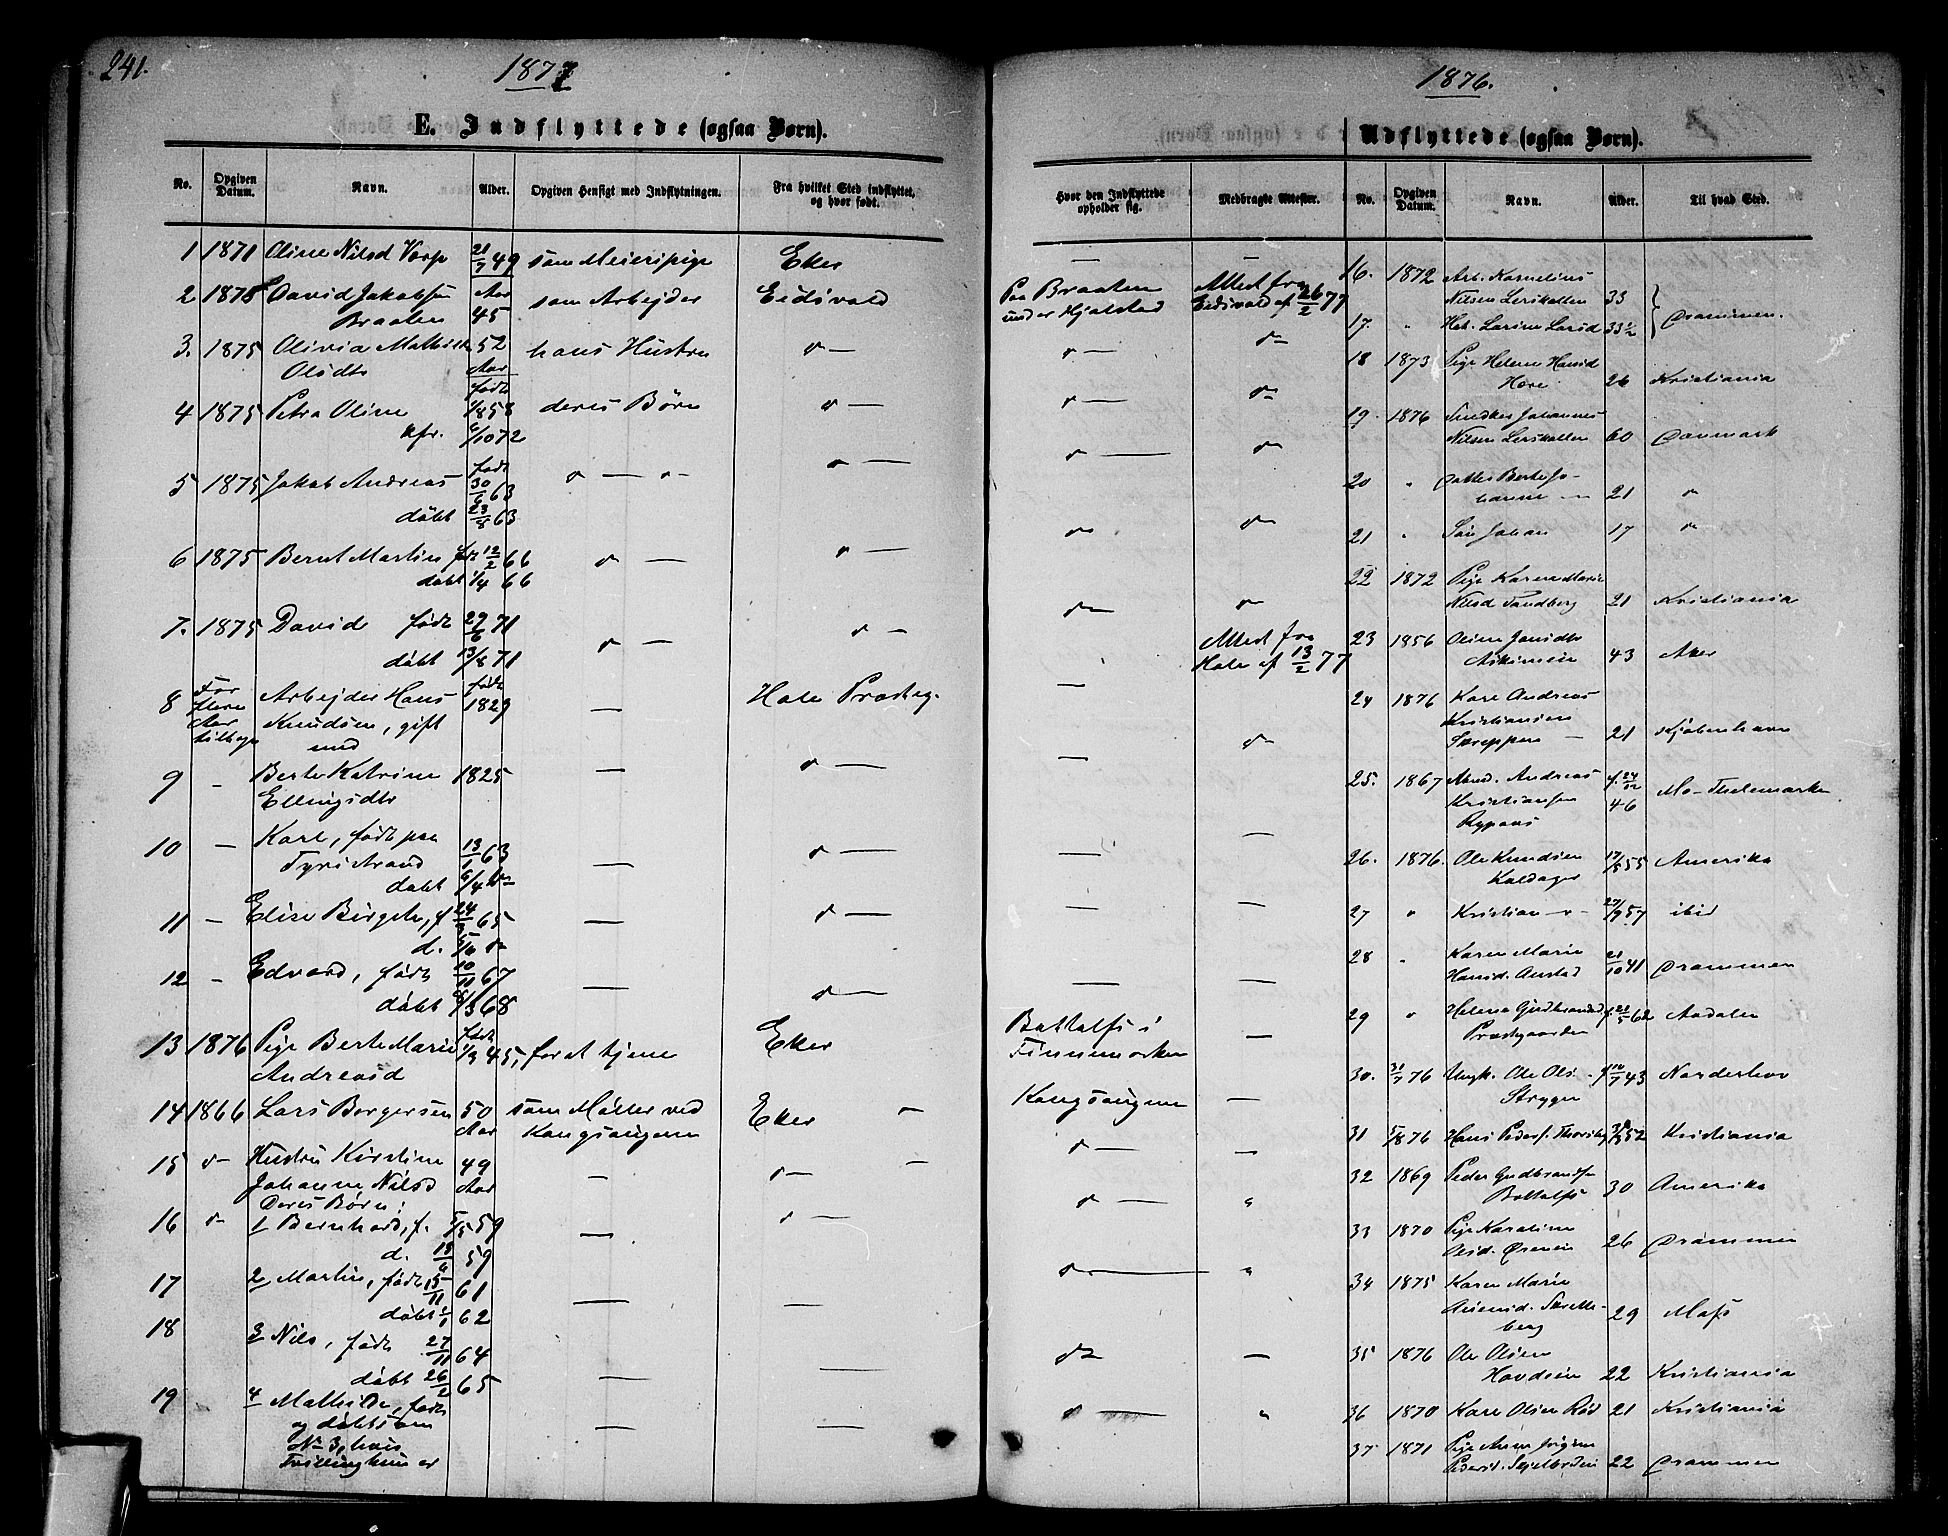 241.
1877
E. Indflyttede (ogsaa Børn).
No. Opgiven Datum. Navn. Alder. Opgiven Hensigt med Indflytningen. Fra hvilket Sted indflyttet, og hvor født.
1 1871 Oline Nilsd 21/7 49 som Meieripige Eker
2 1875 David Jakobsen Aar som Arbejder Eidsvold
Braaten 45
3. 1875 Olivia Mathilde 52 hans Hustru
Olsdtr Aar
4 1875 Petra Oline født 1/8 58 deres Børn
kfr. 6/10 72
5 1875 Jakob Andreas født 30/6 63
døbt 23/8 63
6 1875 Bernt Martin 12/2 66
døbt 1/4 66
7. 1875 David født 27/6 71
døbt 13/8 71
8 For flere Aar tilbage Arbejder Hans født 1829 — Hole Præsteg.
Knudsen, gift
med
9 - Berte Katrine 1825 —
Ellingsdtr
10 — Karl, født paa
Tyristrand 13/1 63 —
døbt 6/4
11 — Elise Birgete, f. 24/3 65 —
d.
12 - Edvard, født 10/11 67 —
døbt 8/3 68
13 1876 Pige Berte Marie født 1/9 45, for at tjene Eker
Andreasd
14 1866 Lars Borgersen 50 som Møller ved Eker
Aar Kongsaugene
15 Hustru Kirstine 49 —
Johanne Nilsd Aar
Deres Børn:
16 1 Bernhard, f. 5/5 59 —
d. 13/6 59
17 2 Martin, født 15/11 61 — —
døbt 1/1 62
18 3 Nils, født 27/11 64 —
døbt 26/2 65
19 4 Mathilde, født —
og døbt som
No 3, hvis
Tvilling hun er
1876.
Udflyttede (ogsaa Børn).
Hvor den Indflyttede opholder sig. Medbragte Attester. No. Opgiven Datum. Navn. Alder. Til hvad Sted.
Paa Braaten Attest fra
under Hjelstad Eidsvold af 26/2 77
Attest fra
Hole af 13/2 77
Bottolfs i
Finnemarken —
Kongsaugene —
16. 1872 Arb. Kornelius
Nilsen Lerskallen 33
17. " Hst. Larine Larsd 33 1/2 Drammen.
18 1873 Pige Helene Hansd
Hore 26 Kristiania
19. 1876 Smedker Johannes
Nilsen Lerskallen 60 Danmark
20 " Datter Berte Jo-
hanne — 21
21 " Søn Johan 17
22 1872 Pige Karen Marie
Nilsd Sandberg 21 Kristiania
23 1856 Oline Jansdtr
43 Aker
24 1876 Karl Andreas
Kristiansen
Skreppen — 21 Kjøbenhavn
25. 1867 Andreas f. 24/12
Kristiansen 46 Mo - Thelemarken
Rypaas
26. 1876. Ole Knudsen 17/5 55 Amerika
Kaldager
27 " Kristian 27/9 57 ibid
28 " Karen Marie 21/10 41 Drammen
Hansd. Anstad
29 " Helene Gudbrandsd 62 Aadalen
Præstgaarden
30. 31/7 76 Ungk. Ole Ols. 43 Norderhov
Strygen
31 5/8 76 Hans Peders. Thorsby 52 Kristiania
32 1869 Peder Gudbrandsen
Bottolfs 30 Amerika
33 1870 Pige Karoline
26 Drammen
34 1875 Karen Marie
29 Moss
berg
35 1876 Ole Olsen
22 Kristiania
36 1870 Karl Olsen Rød 21 Kristiania
37 1871 Pige Anne
Pedersd. 22 Drammen